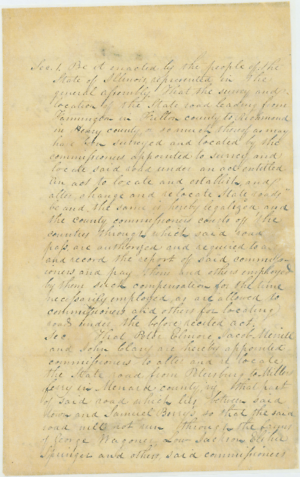 Sec. 1 Be it enacted by the people of the
State of Illinois, represented in the
general assembly, That the survey and
location of the State road leading from
Farmington in Fulton county to richmond
in Henry county or so much thereof as may
have been surveyed and located by the
commissioners appointed to survey and
locate said road under an act entitled
An act to locate and establish and
alter, change and relocate State roads
be and the same is hereby legalized and
the county commissioners courts of the
counties through which said road
pass are authorized and required to
and record the report of said commission
ioners and pay them and others employed
by them such compensation for the time
necessarily employed, as are allowed to
commissioners and others for locating
roads under the before recited act,
Sec. That Peltr. Elmore, Jacob Merrill
and John Clary are hereby appointed
commissioners to alter and relocate
the State road from Petersburg to Miller
ferry in Menard county, viz. that part
of said road which lies between said
town and Samuel Berry's, so that the said
road will not run through the
of George Wagoner,
Spenger and others, said commissioners